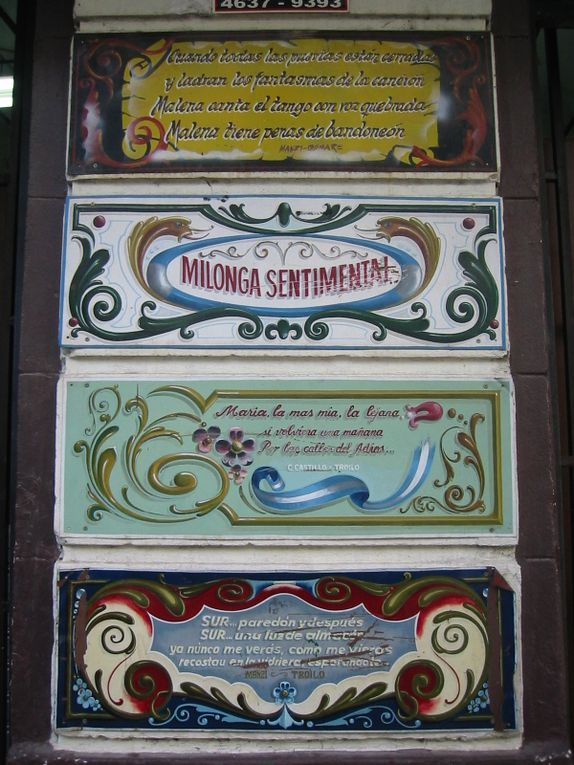 4637 - 9393
Cuando todas las puertas están cerradas
y ladran los fantasmas de la canción
Malena canta el tango con voz quebrada
Malena tiene penas de bandoneón
MANZI-DEMARE
MILONGA SENTIMENTAL
Maria, la mas mia, la lejana
si volviera una mañana
Por las calles del Adios...
C. CASTILLO - TROILO
SUR... paredón y después
SUR... una luz de almacén
ya núnca me verás, como me vieras
recostau en la vidriera, esperandote
MANZI - TROILO